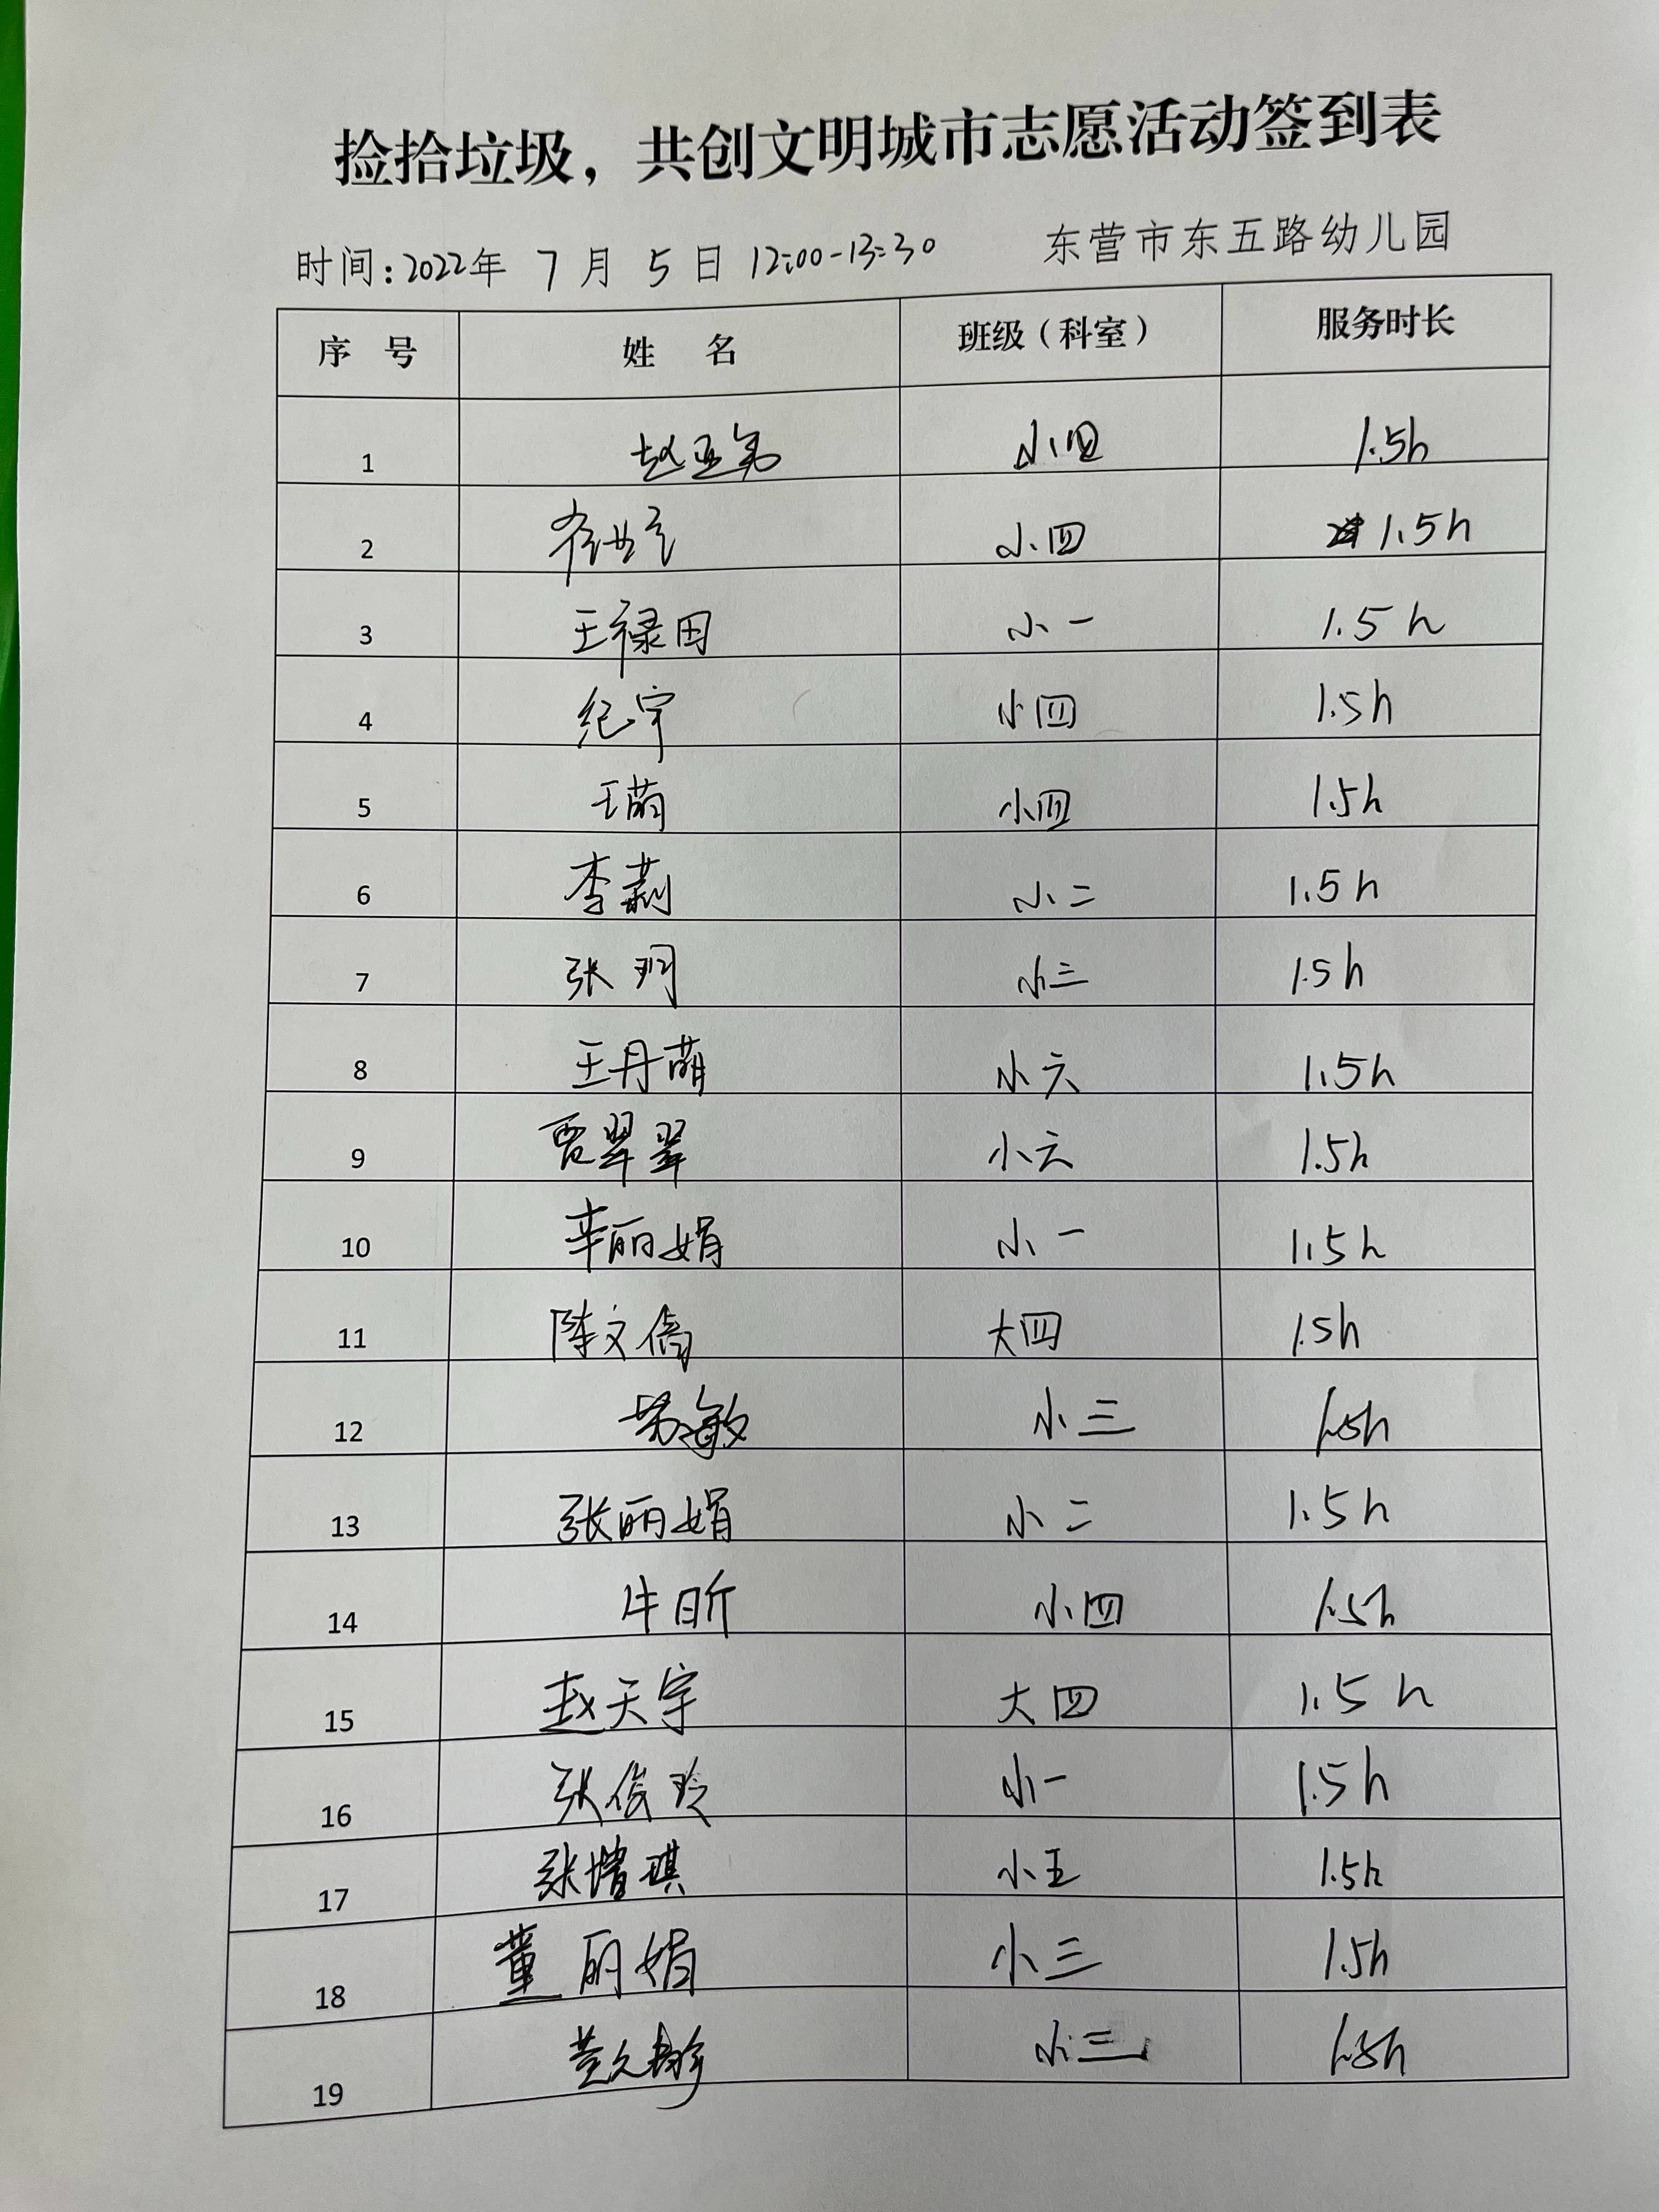 捡拾垃圾，共创文明城市志愿活动签到表
时间：2022年 7 月 5 日 12:00-13:30 东营市东五路幼儿园
序 号 姓 名 班级（科室） 服务时长
1 赵亚弟 小四 1.5h
2 小四 1.5h
3 王禄田 小一 1.5h
4 纪宇 小四 1.5h
5 王萌 小四 1.5h
6 李莉 小二 1.5h
7 张玥 小三 1.5h
8 王丹萌 小六 1.5h
9 贾翠翠 小六 1.5h
10 辛丽娟 小一 1.5h
11 陈文倩 大四 1.5h
12 敏 小三 1.5h
13 张丽娟 小二 1.5h
14 牛昕 小四 1.5h
15 赵天宇 大四 1.5h
16 张俊玲 小一 1.5h
17 张增琪 小五 1.5h
18 董丽娟 小三 1.5h
19 小三 1.5h